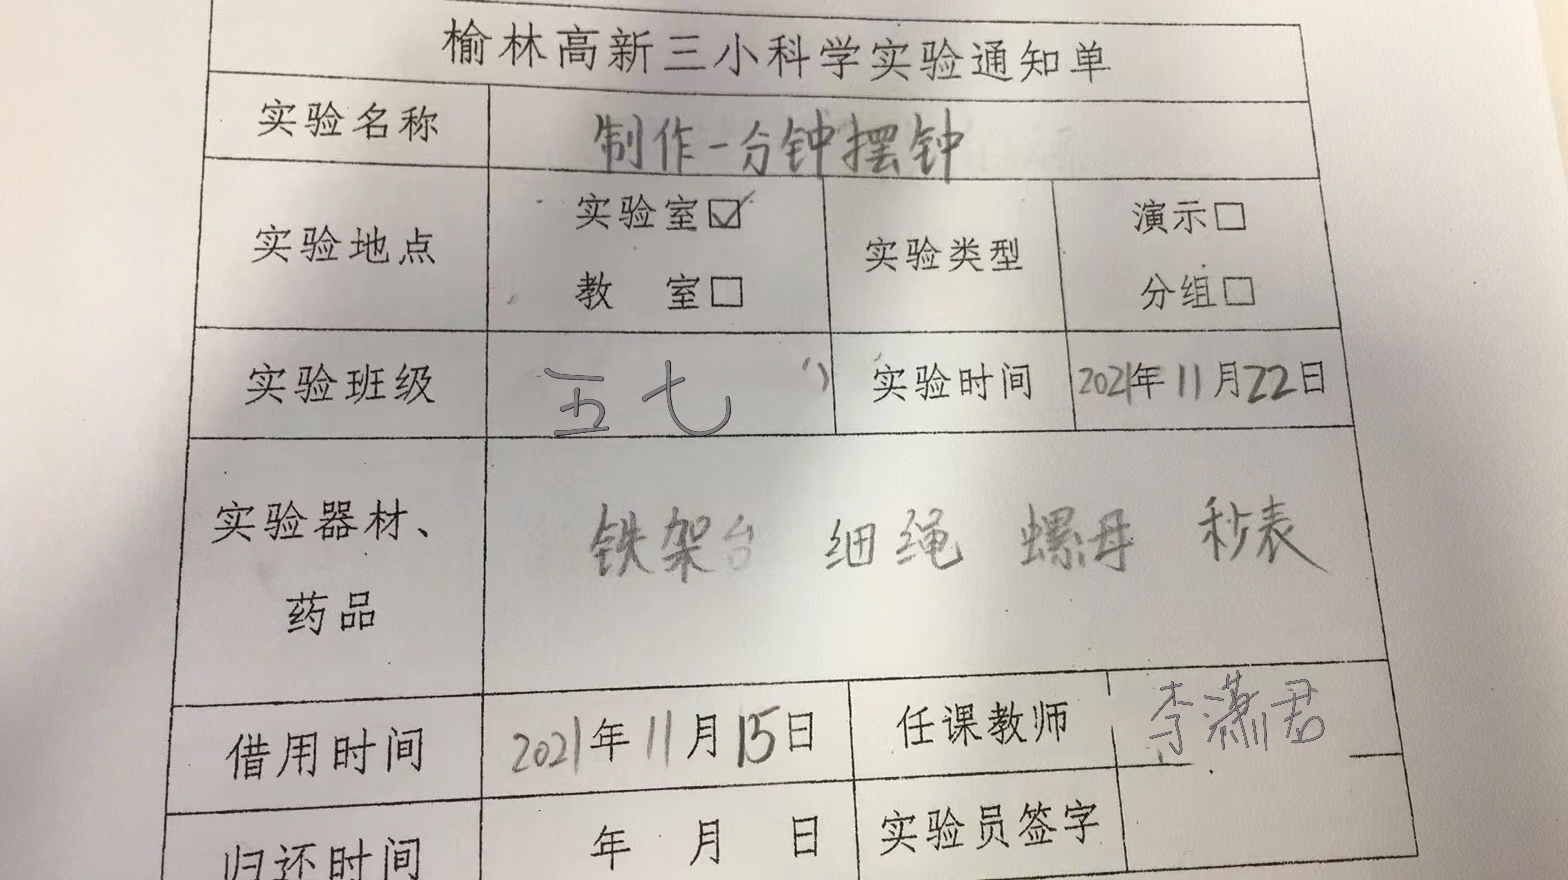 榆林高新三小科学实验通知单
实验名称 制作一分钟摆钟
实验地点 实验室☑ 教 室□ 实验类型 演示□ 分组□
实验班级 五七 实验时间 2021年11月22日
实验器材、药品 铁架台 细绳 螺母 秒表
借用时间 2021年11月15日 任课教师 李潇君
归还时间 年 月 日 实验员签字